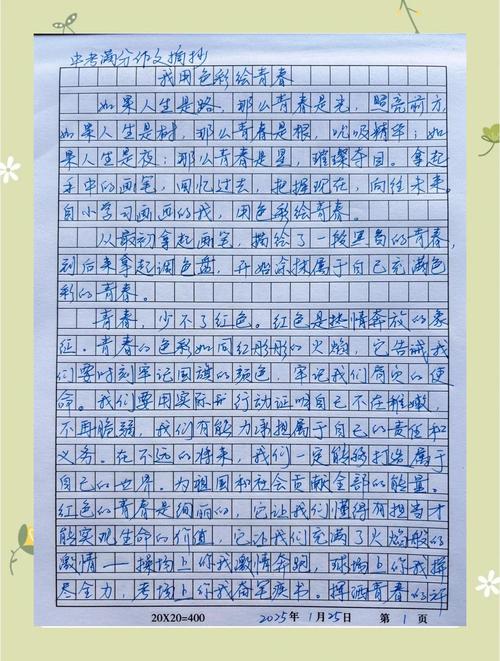 中考满分作文摘抄
我用色彩绘青春
如果人生是路，那么青春是光，照亮前方，
如果人生是树，那么青春是根，吮吸精华；如
果人生是夜；那么青春是星，璀璨夺目。拿起
手中的画笔，回忆过去，把握现在，向往未来。
自小学习画画的我，用色彩绘青春。
从最初拿起画笔，描绘了一段黑白的青春，
到后来拿起调色盘，开始涂抹属于自己充满色
彩的青春。
青春，少不了红色。红色是热情奔放的象
征。青春的色彩如同红彤彤的火焰，它告诫我
们要时刻牢记国旗的颜色，牢记我们肩负的使
命。我们要用实际行动证明自己不在稚嫩，
不再脆弱，我们有能力承担属于自己的责任和
义务。在不远的将来，我们一定能够打造属于
自己的世界。为祖国和社会贡献全部的能量。
红色的青春是绚丽的，它让我们懂得有担当才
能实现生命的价值，它让我们充满了火焰般的
激情——操场上你我激情奔跑，球场上你我挥
尽全力，考场上你我奋笔疾书。挥洒青春的汗
20X20=400 2025年1月25日 第1页